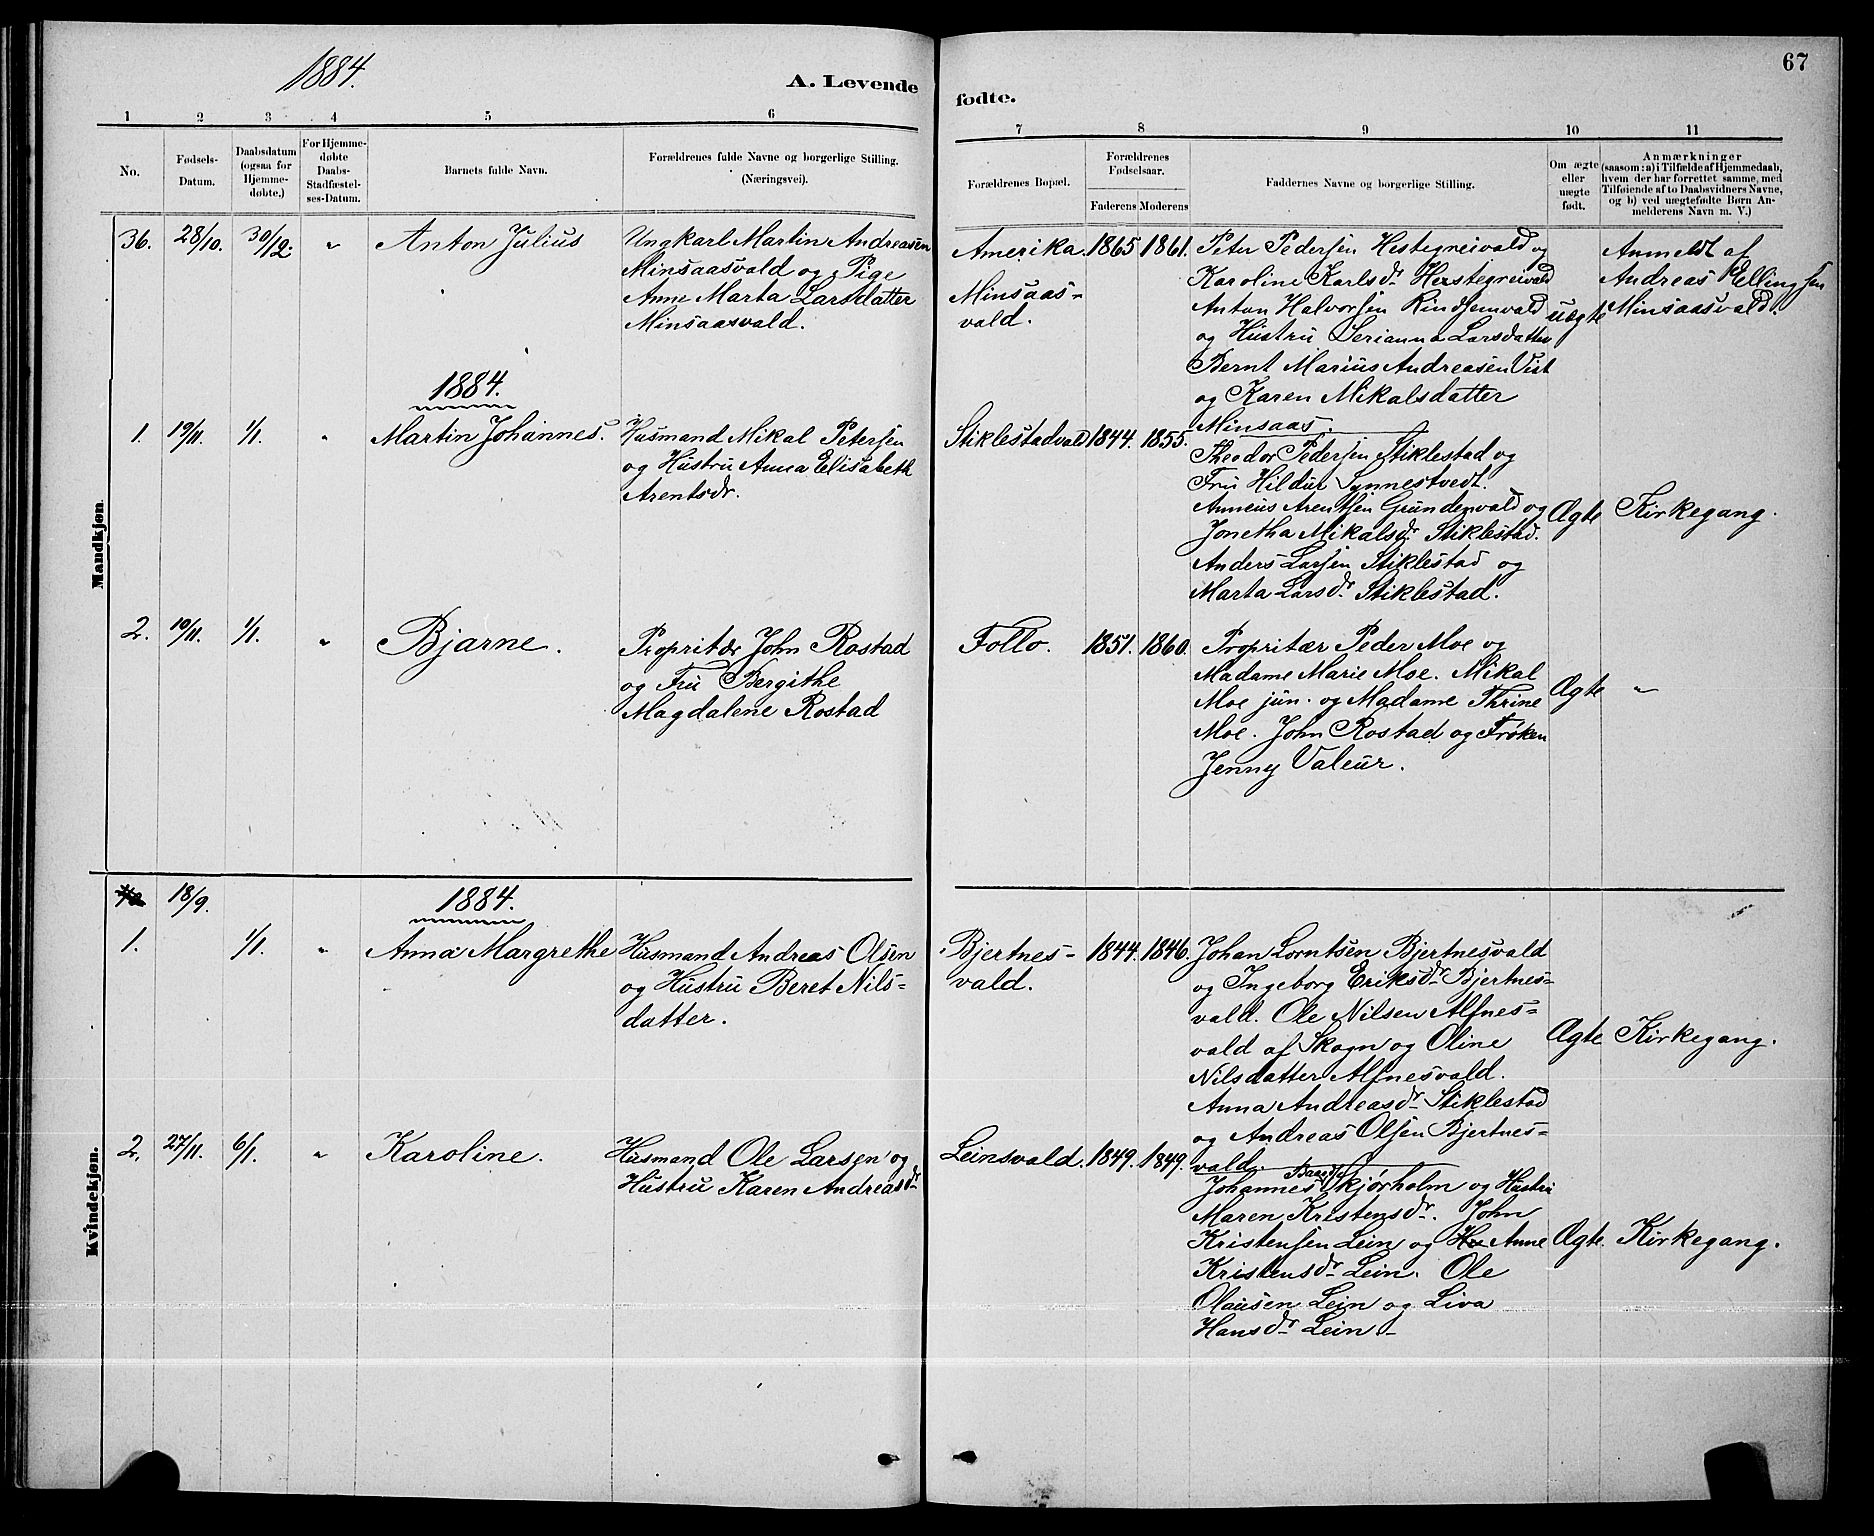 1884.
A. Levende
fødte.
67
1 2 3 4 5 6 7 8 9 10 11
No.
Fødsels-
Datum.
Daabsdatum
(ogsaa for
Hjemme-
døbte.)
For Hjemme-
døbte
Daabs-
Stadfæstel-
ses-Datum.
Barnets fulde Navn.
Forældrenes fulde Navne og borgerlige Stilling.
(Næringsvei).
Forældrenes Bopæl.
Forældrenes
Fødselsaar.
Faderens Moderens
Faddernes Navne og borgerlige Stilling.
Om ægte
eller
uægte
født.
Anmærkninger
(saasom: a) i Tilfælde af Hjemmedaab,
hvem der har forrettet samme, med
Tilføiende af to Daabsvidners Navne,
og b) ved uægtefødte Børn An-
melderens Navn m. V.)
Mandkjøn
36. 28/10. 30/12. " Anton Julius
Ungkarl Martin Andreasen
Minsaasvald og Pige
Anne Marta Larsdatter
Minsaasvald.
Amerika.
Minsaas-
vald.
1865 1861.
Peter Pedersen Hestegreivald og
Karoline Karlsdr. Herstegreivald
Anton Halvorsen Rindsemvald
og Hustru Serianna Larsdatter
Bernt Marius Andreasen Vist
og Karen Mikalsdatter
Minsaas.
uægte
Anmeldt af
Andreas Ellingsen
Minsaasvald.
1884.
1. 19/11. 1/1. " Martin Johannes.
Husmand Mikal Petersen
og Hustru Anna Elisabeth
Arentsdr.
Stiklestadvald 1844. 1855.
Theodor Pedersen Stiklestad og
Fru Hildur Synnestvedt.
Anneus Arentsen Grundenvald og
Jonetha Mikalsdr. Stiklestad.
Anders Larsen Stiklestad og
Marta Larsdr. Stiklestad.
Ægte Kirkegang.
2. 10/11. 1/1. " Bjarne.
Propritær John Rostad
og Fru Bergithe
Magdalene Rostad
Follo. 1851. 1860.
Propritær Peder Moe og
Madame Marie Moe. Mikal
Moe jun. og Madame Thrine
Moe. John Rostad og Frøken
Jenny Valeur.
Ægte "
Kvindekjøn.
18/9.
1884.
1. 1/1. " Anna Margrethe
Husmand Andreas Olsen
og Hustru Beret Nils-
datter.
Bjertnes-
vald.
1844. 1846.
Johan Lorntsen Bjertnesvald
og Ingeborg Eriksdr. Bjertnes-
vald. Ole Nilsen Alfnes-
vald af Skogn og Oline
Nilsdatter Alfnesvald.
Anna Andreasdr. Stiklestad
og Andreas Olsen Bjertnes-
vald.
Ægte Kirkegang.
2. 27/11. 6/1. " Karoline.
Husmand Ole Larsen og
Hustru Karen Andreasdr.
Leinsvald. 1849. 1849.
Johannes Skjørholm og Hustru
Maren Kristensdr. John
Kristensen Lein og Anne
Kristensdr. Lein. Ole
Olausen Lein og Liva
Hansdr. Lein.
Ægte. Kirkegang.